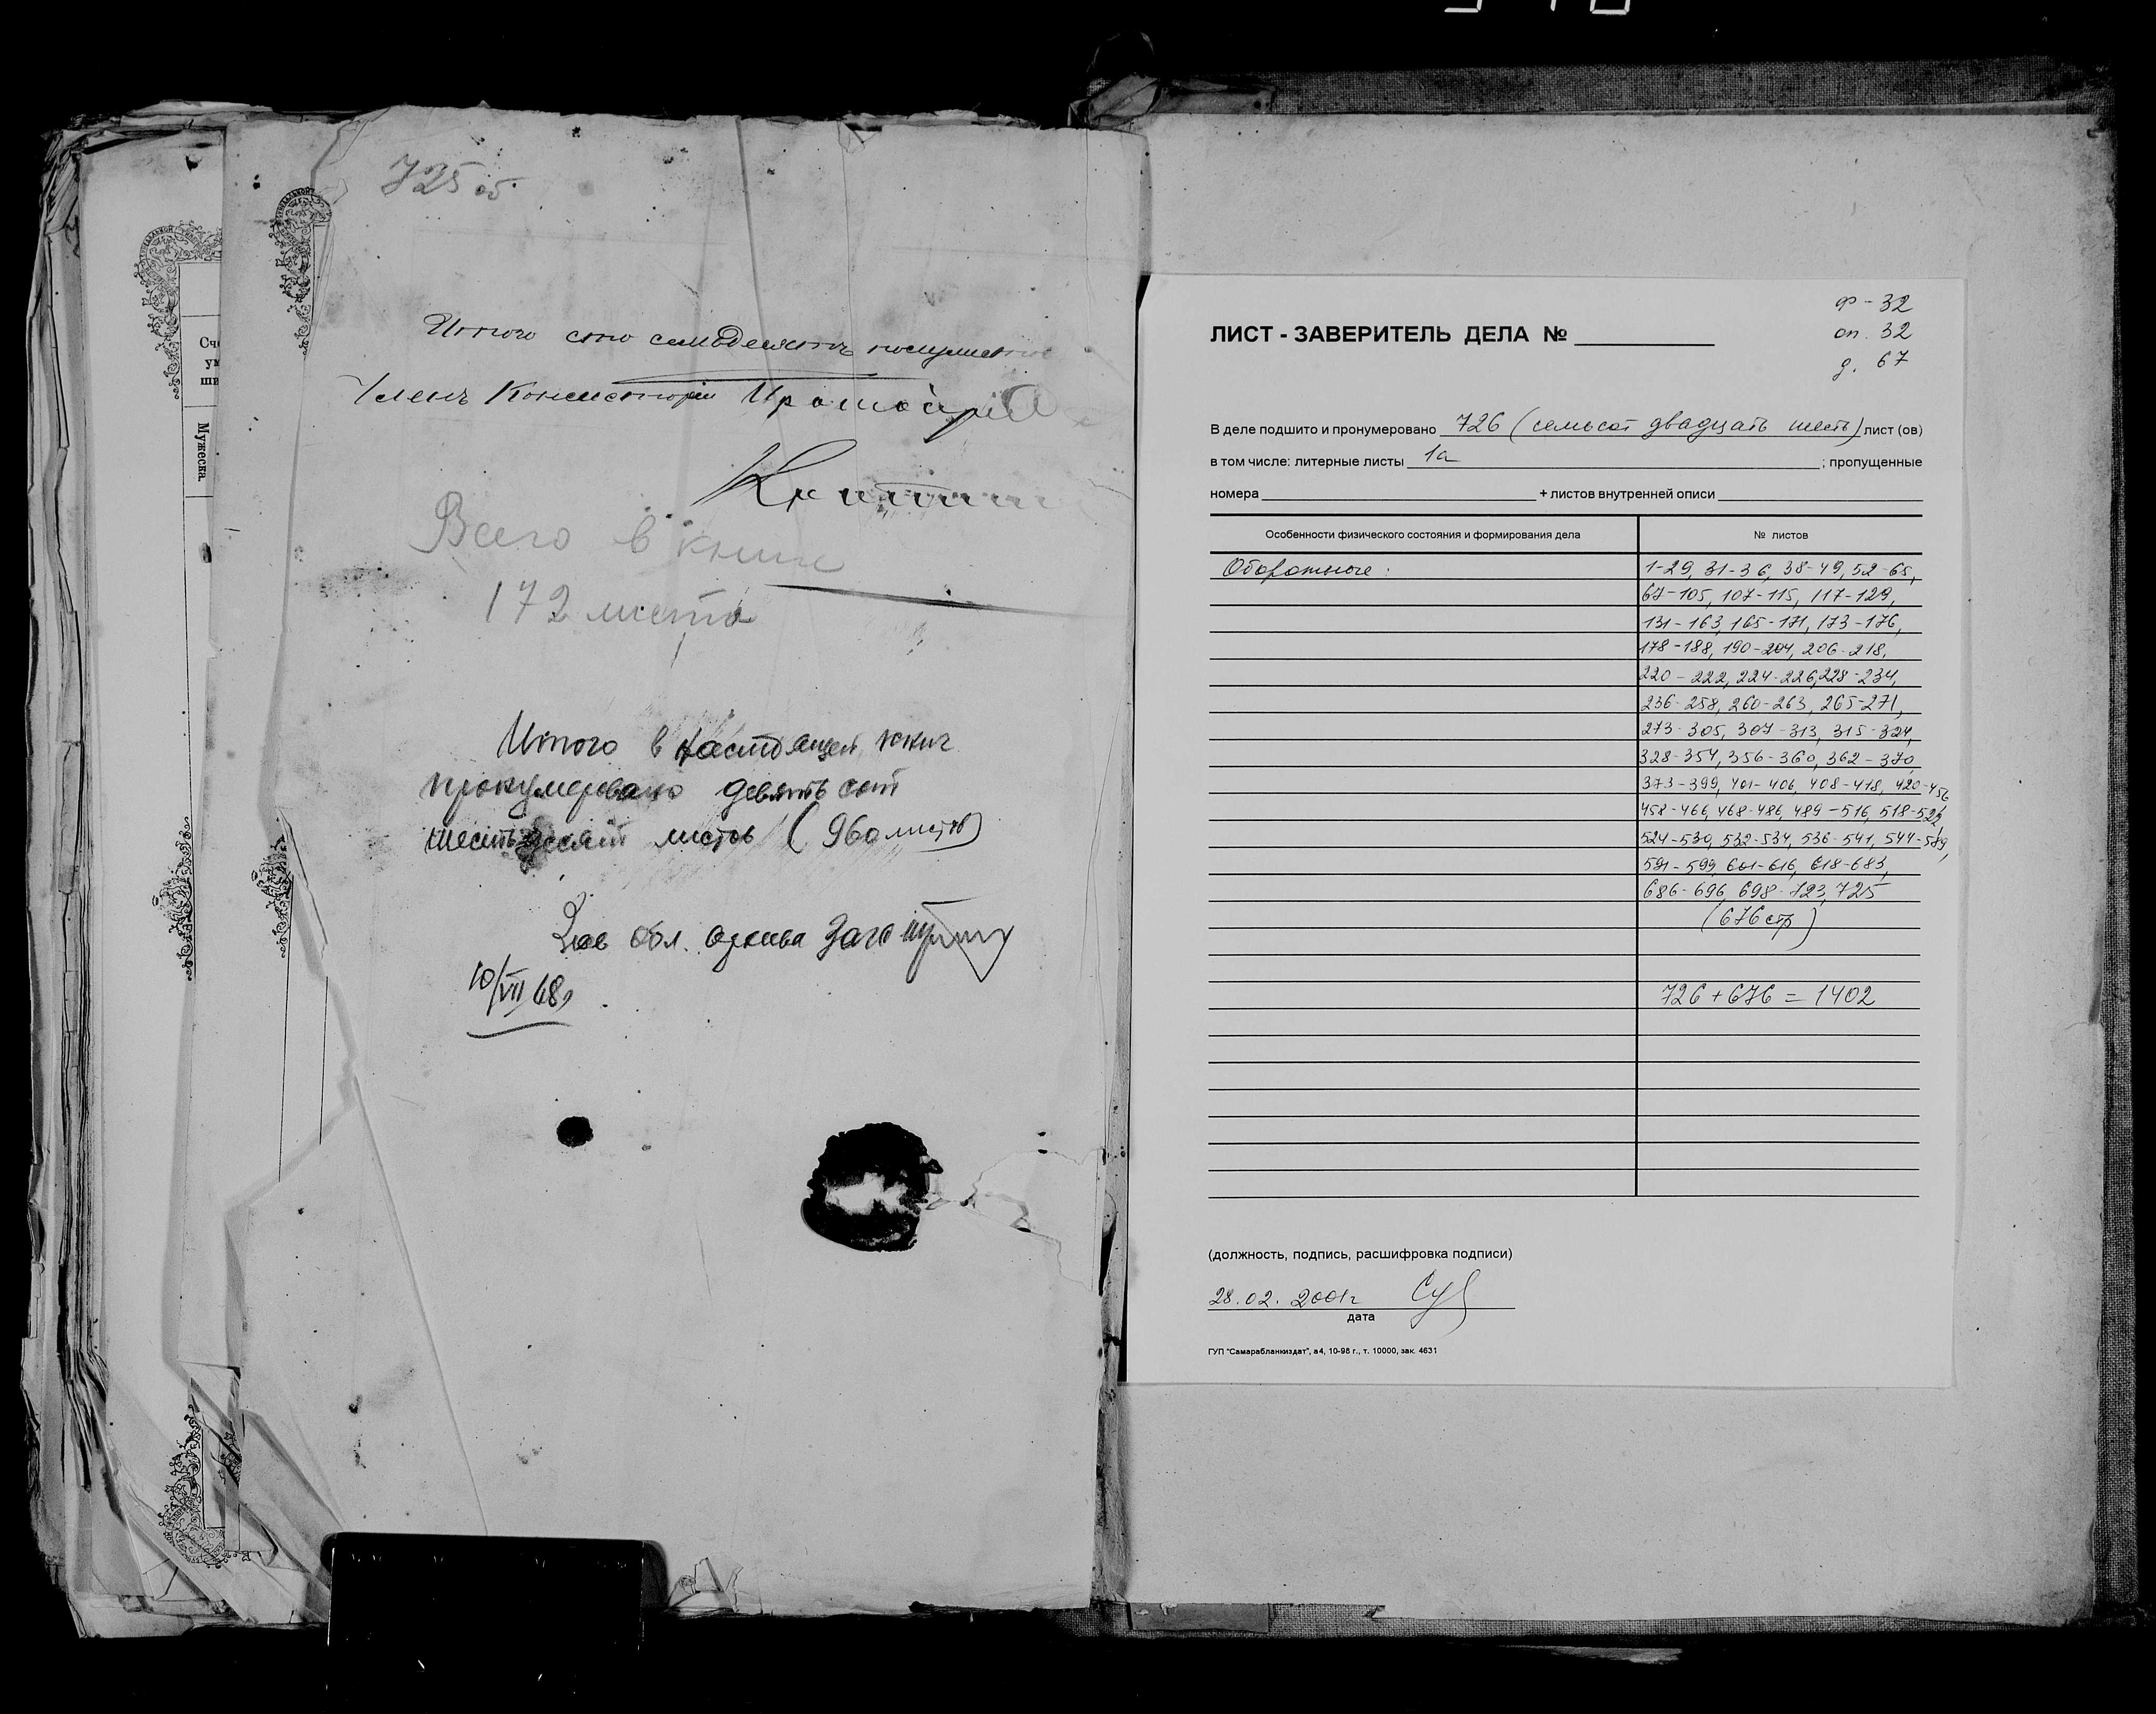 725 об.
Итого сто семьдесятъ
Членъ Консисторіи
Всего в книге
172 листа
Итого в настоящей книге
пронумеровано девятьсот
шестьдесят листов (960 листов)
Зав обл. архива
10/VII 48г
Сче
ум
ши
Мужеска.
Ф - 32
ЛИСТ - ЗАВЕРИТЕЛЬ ДЕЛА №
оп. 32
д. 67
В деле подшито и пронумеровано 726 (семьсот двадцать шесть) лист (ов)
в том числе: литерные листы 1а ; пропущенные
номера + листов внутренней описи
Особенности физического состояния и формирования дела № листов
Оборотные: 1-29, 31-36, 38-49, 52-65,
67-105, 107-115, 117-129,
131-163, 165-171, 173-176,
178-188, 190-204, 206-218,
220-222, 224-226, 228-234,
236-258, 260-263, 265-271,
273-305, 307-313, 315-324,
328-354, 356-360, 362-370,
373-399, 401-406, 408-418, 420-456
458-466, 468-486, 489-516, 518-522,
524-530, 532-534, 536-541, 544-589,
591-599, 601-616, 618-683,
686-696, 698-723, 725
(676 стр)
726 + 676 = 1402
(должность, подпись, расшифровка подписи)
28.02. 2001г
дата
ГУП "Самарабланкиздат", а4, 10-98 г., т. 10000, зак. 4631